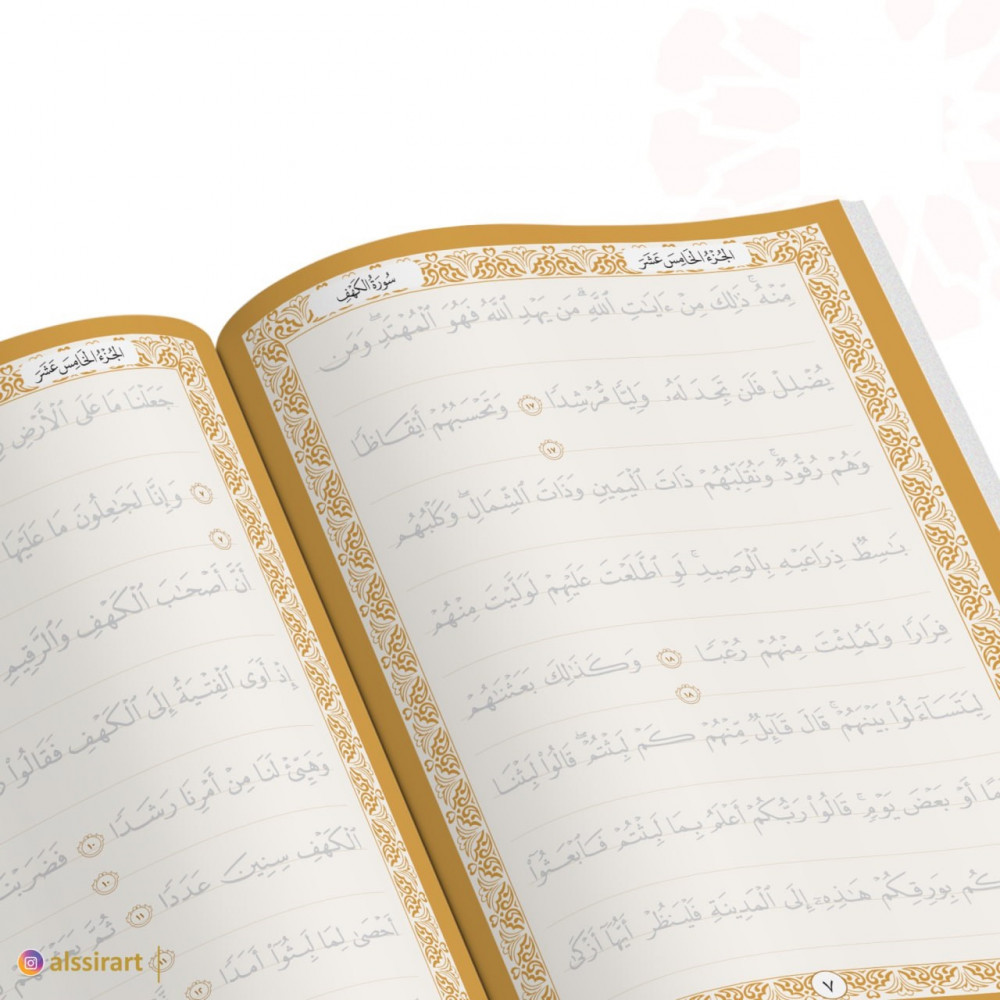 الجُزْءُ الخَامِسَ عَشَرَ
سُورَةُ الكَهْفِ
مِنْهُۚ ذَٰلِكَ مِنْ ءَايَٰتِ ٱللَّهِۗ مَن يَهْدِ ٱللَّهُ فَهُوَ ٱلْمُهْتَدِۖ وَمَن
يُضْلِلْ فَلَن تَجِدَ لَهُۥ وَلِيًّا مُّرْشِدًا ١٧ وَتَحْسَبُهُمْ أَيْقَاظًا
١٧
وَهُمْ رُقُودٌۚ وَنُقَلِّبُهُمْ ذَاتَ ٱلْيَمِينِ وَذَاتَ ٱلشِّمَالِۖ وَكَلْبُهُم
بَٰسِطٌ ذِرَاعَيْهِ بِٱلْوَصِيدِۚ لَوِ ٱطَّلَعْتَ عَلَيْهِمْ لَوَلَّيْتَ مِنْهُمْ
فِرَارًا وَلَمُلِئْتَ مِنْهُمْ رُعْبًا ١٨ وَكَذَٰلِكَ بَعَثْنَٰهُمْ
١٨
لِيَتَسَآءَلُوا۟ بَيْنَهُمْۚ قَالَ قَآئِلٌ مِّنْهُمْ كَمْ لَبِثْتُمْۖ قَالُوا۟ لَبِثْنَا
أَوْ بَعْضَ يَوْمٍۚ قَالُوا۟ رَبُّكُمْ أَعْلَمُ بِمَا لَبِثْتُمْ فَٱبْعَثُوٓا۟
بِوَرِقِكُمْ هَٰذِهِۦٓ إِلَى ٱلْمَدِينَةِ فَلْيَنظُرْ أَيُّهَآ أَزْكَىٰ
٧
الجُزْءُ الخَامِسَ عَشَرَ
جَعَلْنَا مَا عَلَى ٱلْأَرْضِ
٧ وَإِنَّا لَجَٰعِلُونَ مَا عَلَيْهَا
٧
أَنَّ أَصْحَٰبَ ٱلْكَهْفِ وَٱلرَّقِيمِ
إِذْ أَوَى ٱلْفِتْيَةُ إِلَى ٱلْكَهْفِ فَقَالُوا۟
وَهَيِّئْ لَنَا مِنْ أَمْرِنَا رَشَدًا ١٠ فَضَرَبْنَا
١٠
ٱلْكَهْفِ سِنِينَ عَدَدًا ١١ ثُمَّ بَعَثْنَٰهُمْ
أَحْصَىٰ لِمَا لَبِثُوٓا۟ أَمَدًا ١٢
alssirart